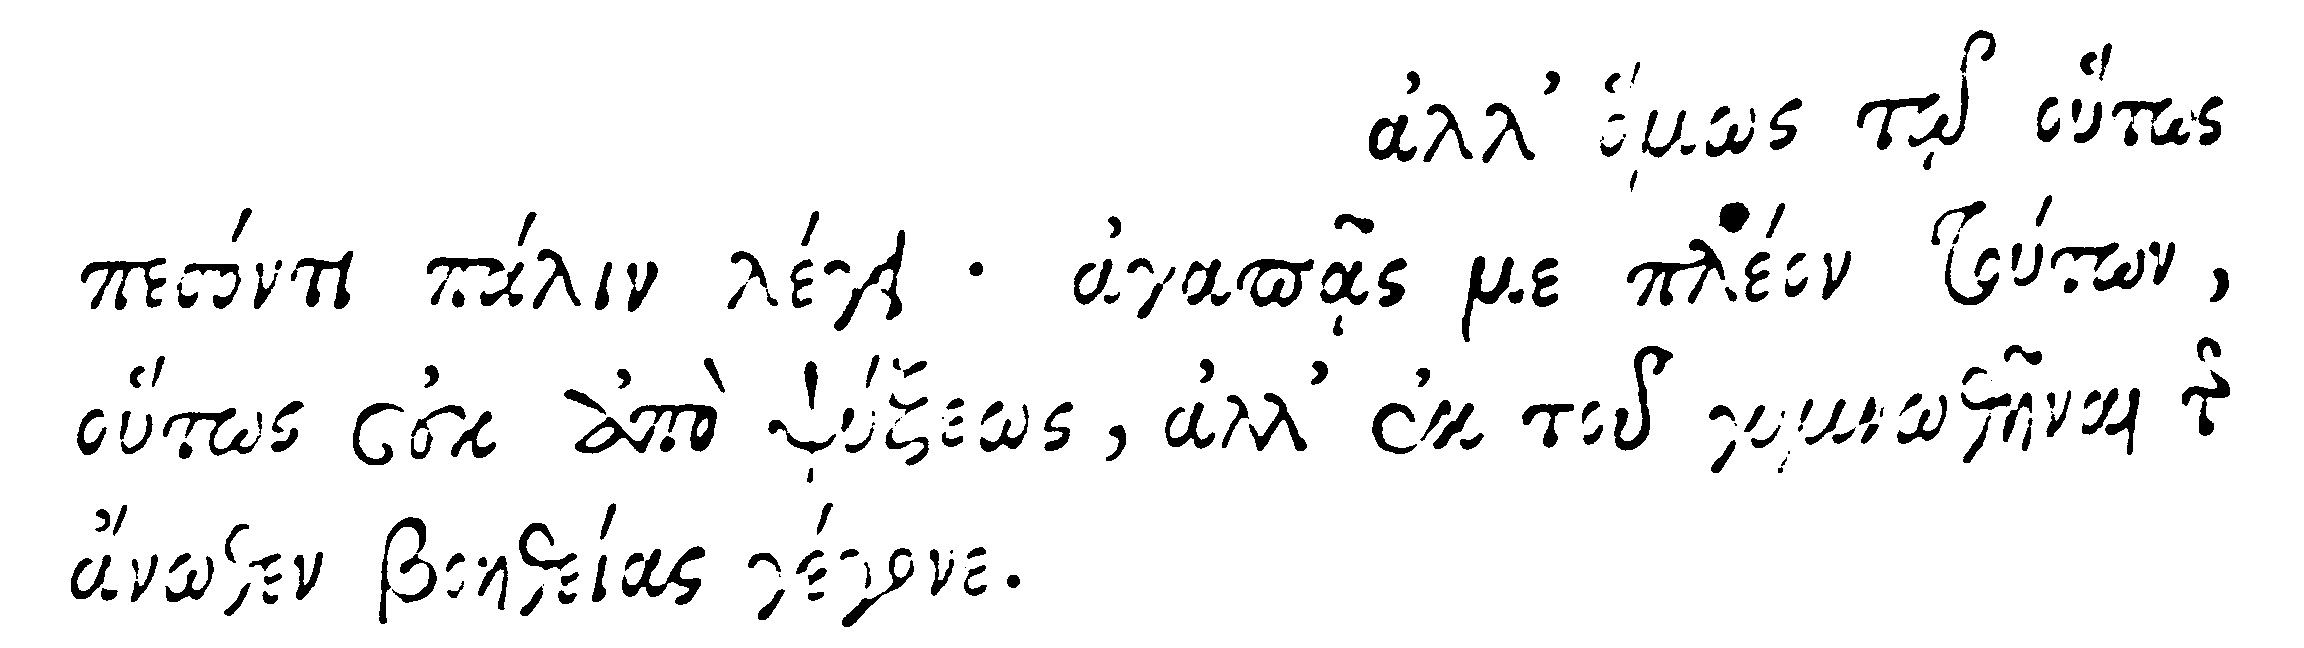 ἀλλ’ ὅμως τῷ οὕτως
πεσόντι πάλιν λέγει · ἀγαπᾷς με πλέον τούτων,
οὕτως οὐκ ἀπὸ ψύξεως, ἀλλ’ ἐκ τοῦ γυμνωθῆναι τῆς
ἄνωθεν βοηθείας γέγονε.